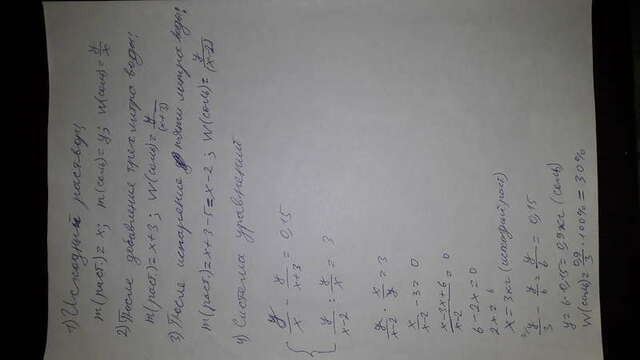 1) Исходный раствор:
m(раст.) = x; m(соль) = y; W(соль) = y/x
2) После добавление трех литра воды:
m(раст.) = x+3; W(соль) = y/(x+3)
3) После испарение пяти литра воды:
m(раст.) = x+3-5 = x-2; W(соль) = y/(x-2)
4) Система уравнений
y/x - y/x+3 = 0,15
y/x-2 : y/x = 3
y/x-2 · x/y = 3
x/x-2 - 3 = 0
x-3x+6/x-2 = 0
6-2x=0
2x = 6
x = 3кг (исходный раст)
y/3 - y/6 = y/6 = 0,15
y = 6·0,15 = 0,9кг (соль)
W(соль) = 0,9/3 · 100% = 30%